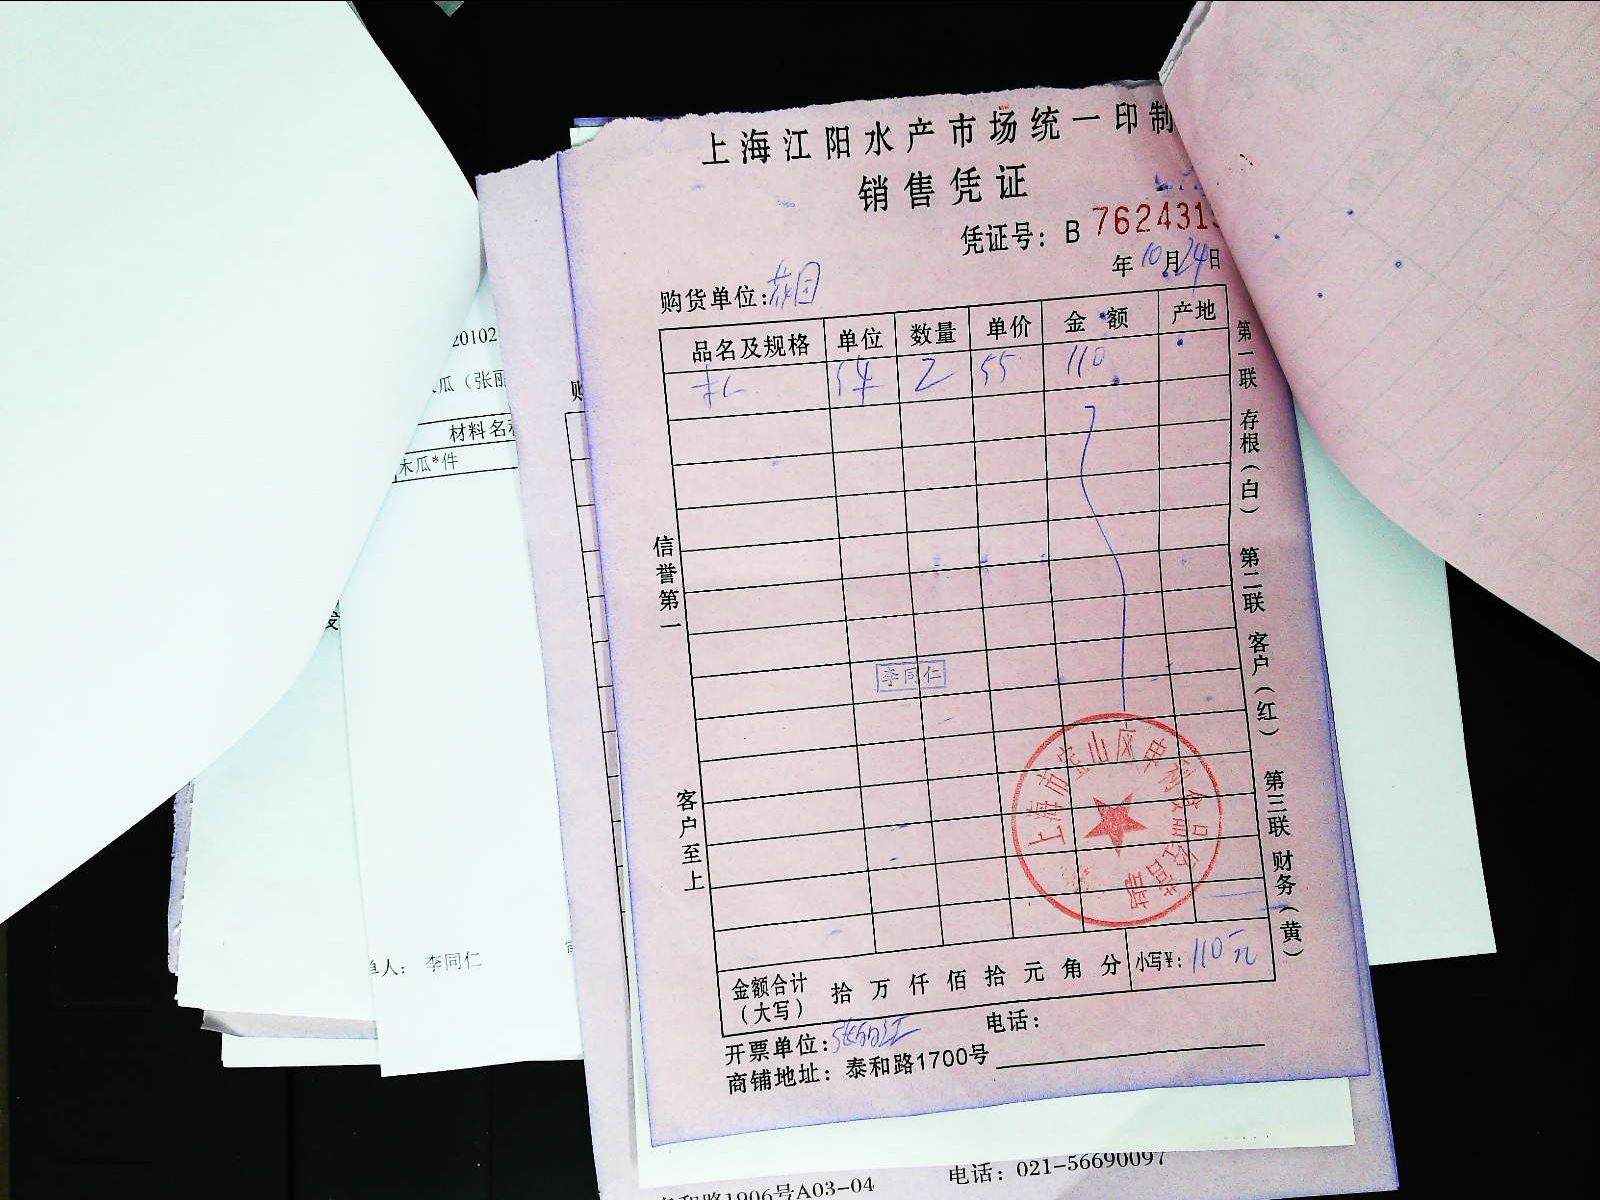 上海江阳水产市场统一印制
销售凭证
凭证号: B 762431
年 10 月 24 日
购货单位:
品名及规格 单位 数量 单价 金额 产地
2 55 110
第一联 存根(白) 第二联 客户(红) 第三联 财务(黄)
信誉第一
客户至上
李同仁
上海市宝山区申
金额合计(大写) 拾 万 仟 佰 拾 元 角 分 小写¥: 110元
开票单位: 电话:
商铺地址: 泰和路1700号
20102
木瓜(张丽
材料名称
木瓜*件
单人: 李同仁
购
泰和路1906号A03-04 电话: 021-56690097